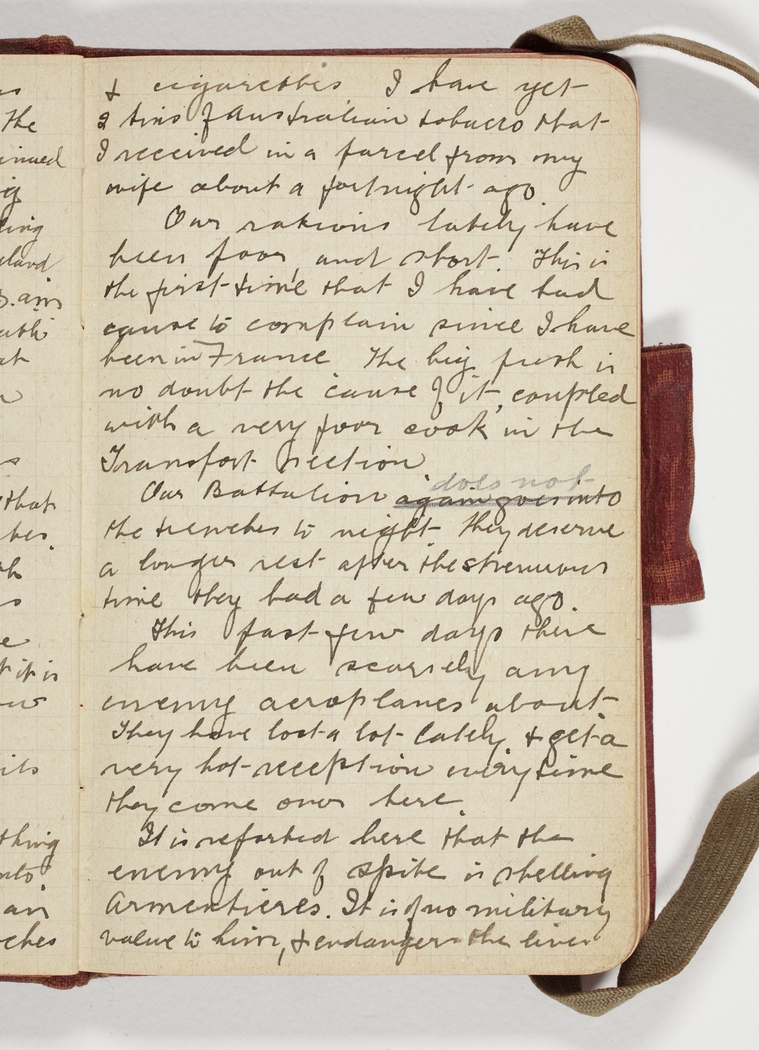 & cigarettes I have yet
2 tins of Australian tobacco that
I received in a parcel from my
wife about a fortnight ago.
Our rations lately have
been poor and short. This is
the first time that I have had
cause to complain since I have
been in France. The big push is
no doubt the cause of it, coupled
with a very poor cook in the
Transport section
does not
Our Battalion again goes into
the trenches to night. They deserve
a longer rest after the strenuous
time they had a few days ago.
This past few days there
have been scarsely any
enemy aeroplanes about.
They have lost a lot lately & get a
very hot reception every time
they come over here.
It is reported here that the
enemy out of spite is shelling
Armentieres. It is of no military
value to him, & endangers the lives
the
inued
ling
eland
at
that
it is
its
thing
into
air